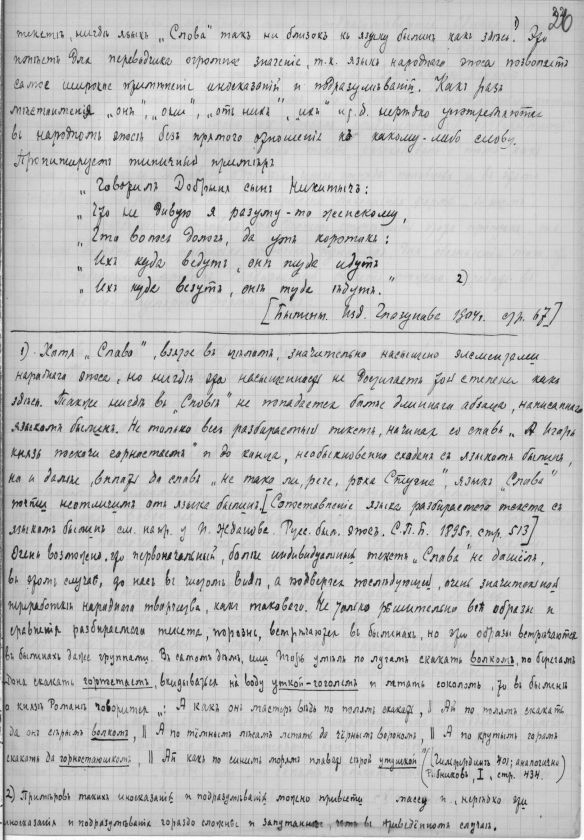 26
текстѣ, нигдѣ языкъ „Слова" такъ ни близокъ къ языку былинъ какъ здѣсь. 1) Это
для переводчика огромное значеніе, т.к. языкъ народнаго эпоса позволяетъ
самое широкое примѣненіе иносказаній и подразумѣваній. Какъ разъ
мѣстоименія „онъ", „они", „отъ нихъ", „ихъ" и т.д. нерѣдко употребляются
въ народномъ эпосѣ безъ прямого отношенія къ какому-либо слову.
Процитируемъ типичный примѣръ
„Говорилъ Добрыня сынъ Никитычъ:
„Что не дивую я разуму-то женскому,
„Что волосъ дологъ, да умъ коротокъ:
„Ихъ куда ведутъ, они туда идутъ
„Ихъ куда везутъ, онѣ туда ѣдутъ." 2)
[Былины. Изд. Глазунова 1904г. стр. 67]
1) Хотя „Слово", взятое въ цѣломъ, значительно насыщено элементами
народнаго эпоса, но нигдѣ эта насыщенность не достигаетъ той степени какъ
здѣсь. Также нигдѣ въ „Словѣ" не попадается болѣе длиннаго абзаца, написаннаго
языкомъ былинъ. Не только весь разбираемый текстъ, начиная со словъ „А Игорь
князь поскочи горностаемъ" и до конца, необыкновенно сходенъ съ языкомъ былинъ,
но и далѣе, вплоть до словъ „не тако ли, рече, рѣка Стугна", языкъ „Слова"
почти неотличимъ отъ языка былинъ. [Сопоставленіе языка разбираемаго текста съ
языкомъ былинъ см. напр. у И. Жданова. Русс. был. эпосъ. С.П.Б. 1895г. стр. 513]
Очень возможно, что первоначальный, болѣе индивидуальный текстъ „Слова" не дошелъ,
въ этомъ случаѣ, до насъ въ чистомъ видѣ, а подвергся послѣдующей, очень значительной
переработкѣ народнаго творчества, какъ такового. Не только рѣшительно всѣ образы и
сравненія разбираемаго текста, порознь, встрѣчаются въ былинахъ, но эти образы встрѣчаются
въ былинахъ даже группами. Въ самомъ дѣлѣ, если Игорь умѣлъ по лугамъ скакать волкомъ, по берегамъ
Дона скакать горностаемъ, вкидываться на воду уткой-гоголемъ и летать соколомъ, то въ былинѣ
о князѣ Романѣ говорится: „А какъ онъ мастеръ вѣдь по полямъ скакать, || Ай по полямъ скакать
да онъ сѣрымъ волкомъ, || А по тёмнымъ лѣсамъ летать да чёрнымъ ворономъ, || А по крутымъ горамъ
скакать да горностаюшкомъ, || Ай какъ по синимъ морямъ плавать сѣрой утушкой" (Гильфердингъ 401; аналогично
Рыбниковъ, I, стр. 434.)
2) Примѣровъ такихъ иносказаній и подразумѣваній можно привести массу и, нерѣдко эти
иносказанія и подразумѣванія гораздо сложнѣе и запутаннѣе, чѣмъ въ приведённомъ случаѣ.